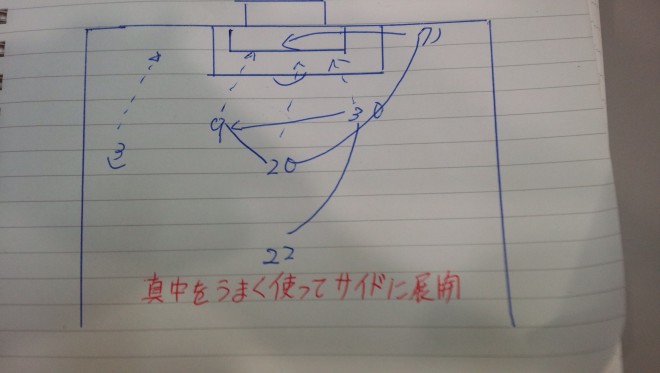 9
30
3
20
22
真中をうまく使ってサイドに展開